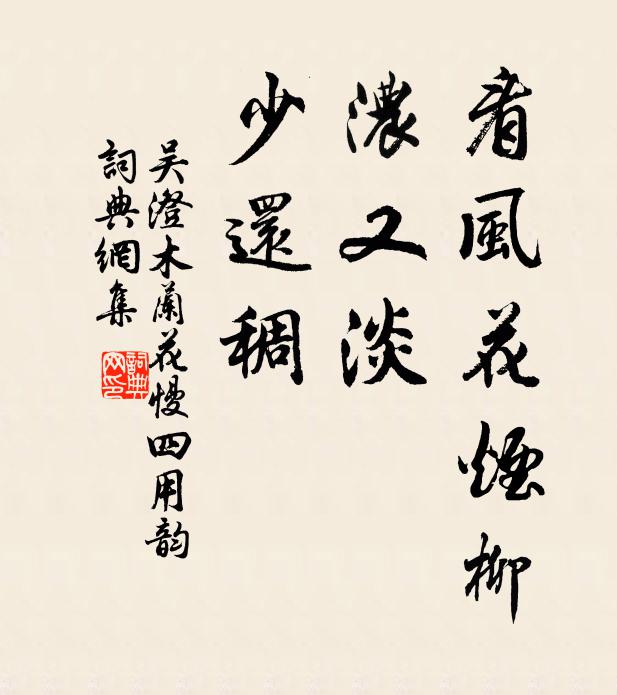 看風花煙柳
濃又淡
少還稠
吳澄木蘭花慢四用韵
詞典網集
詞典
网印